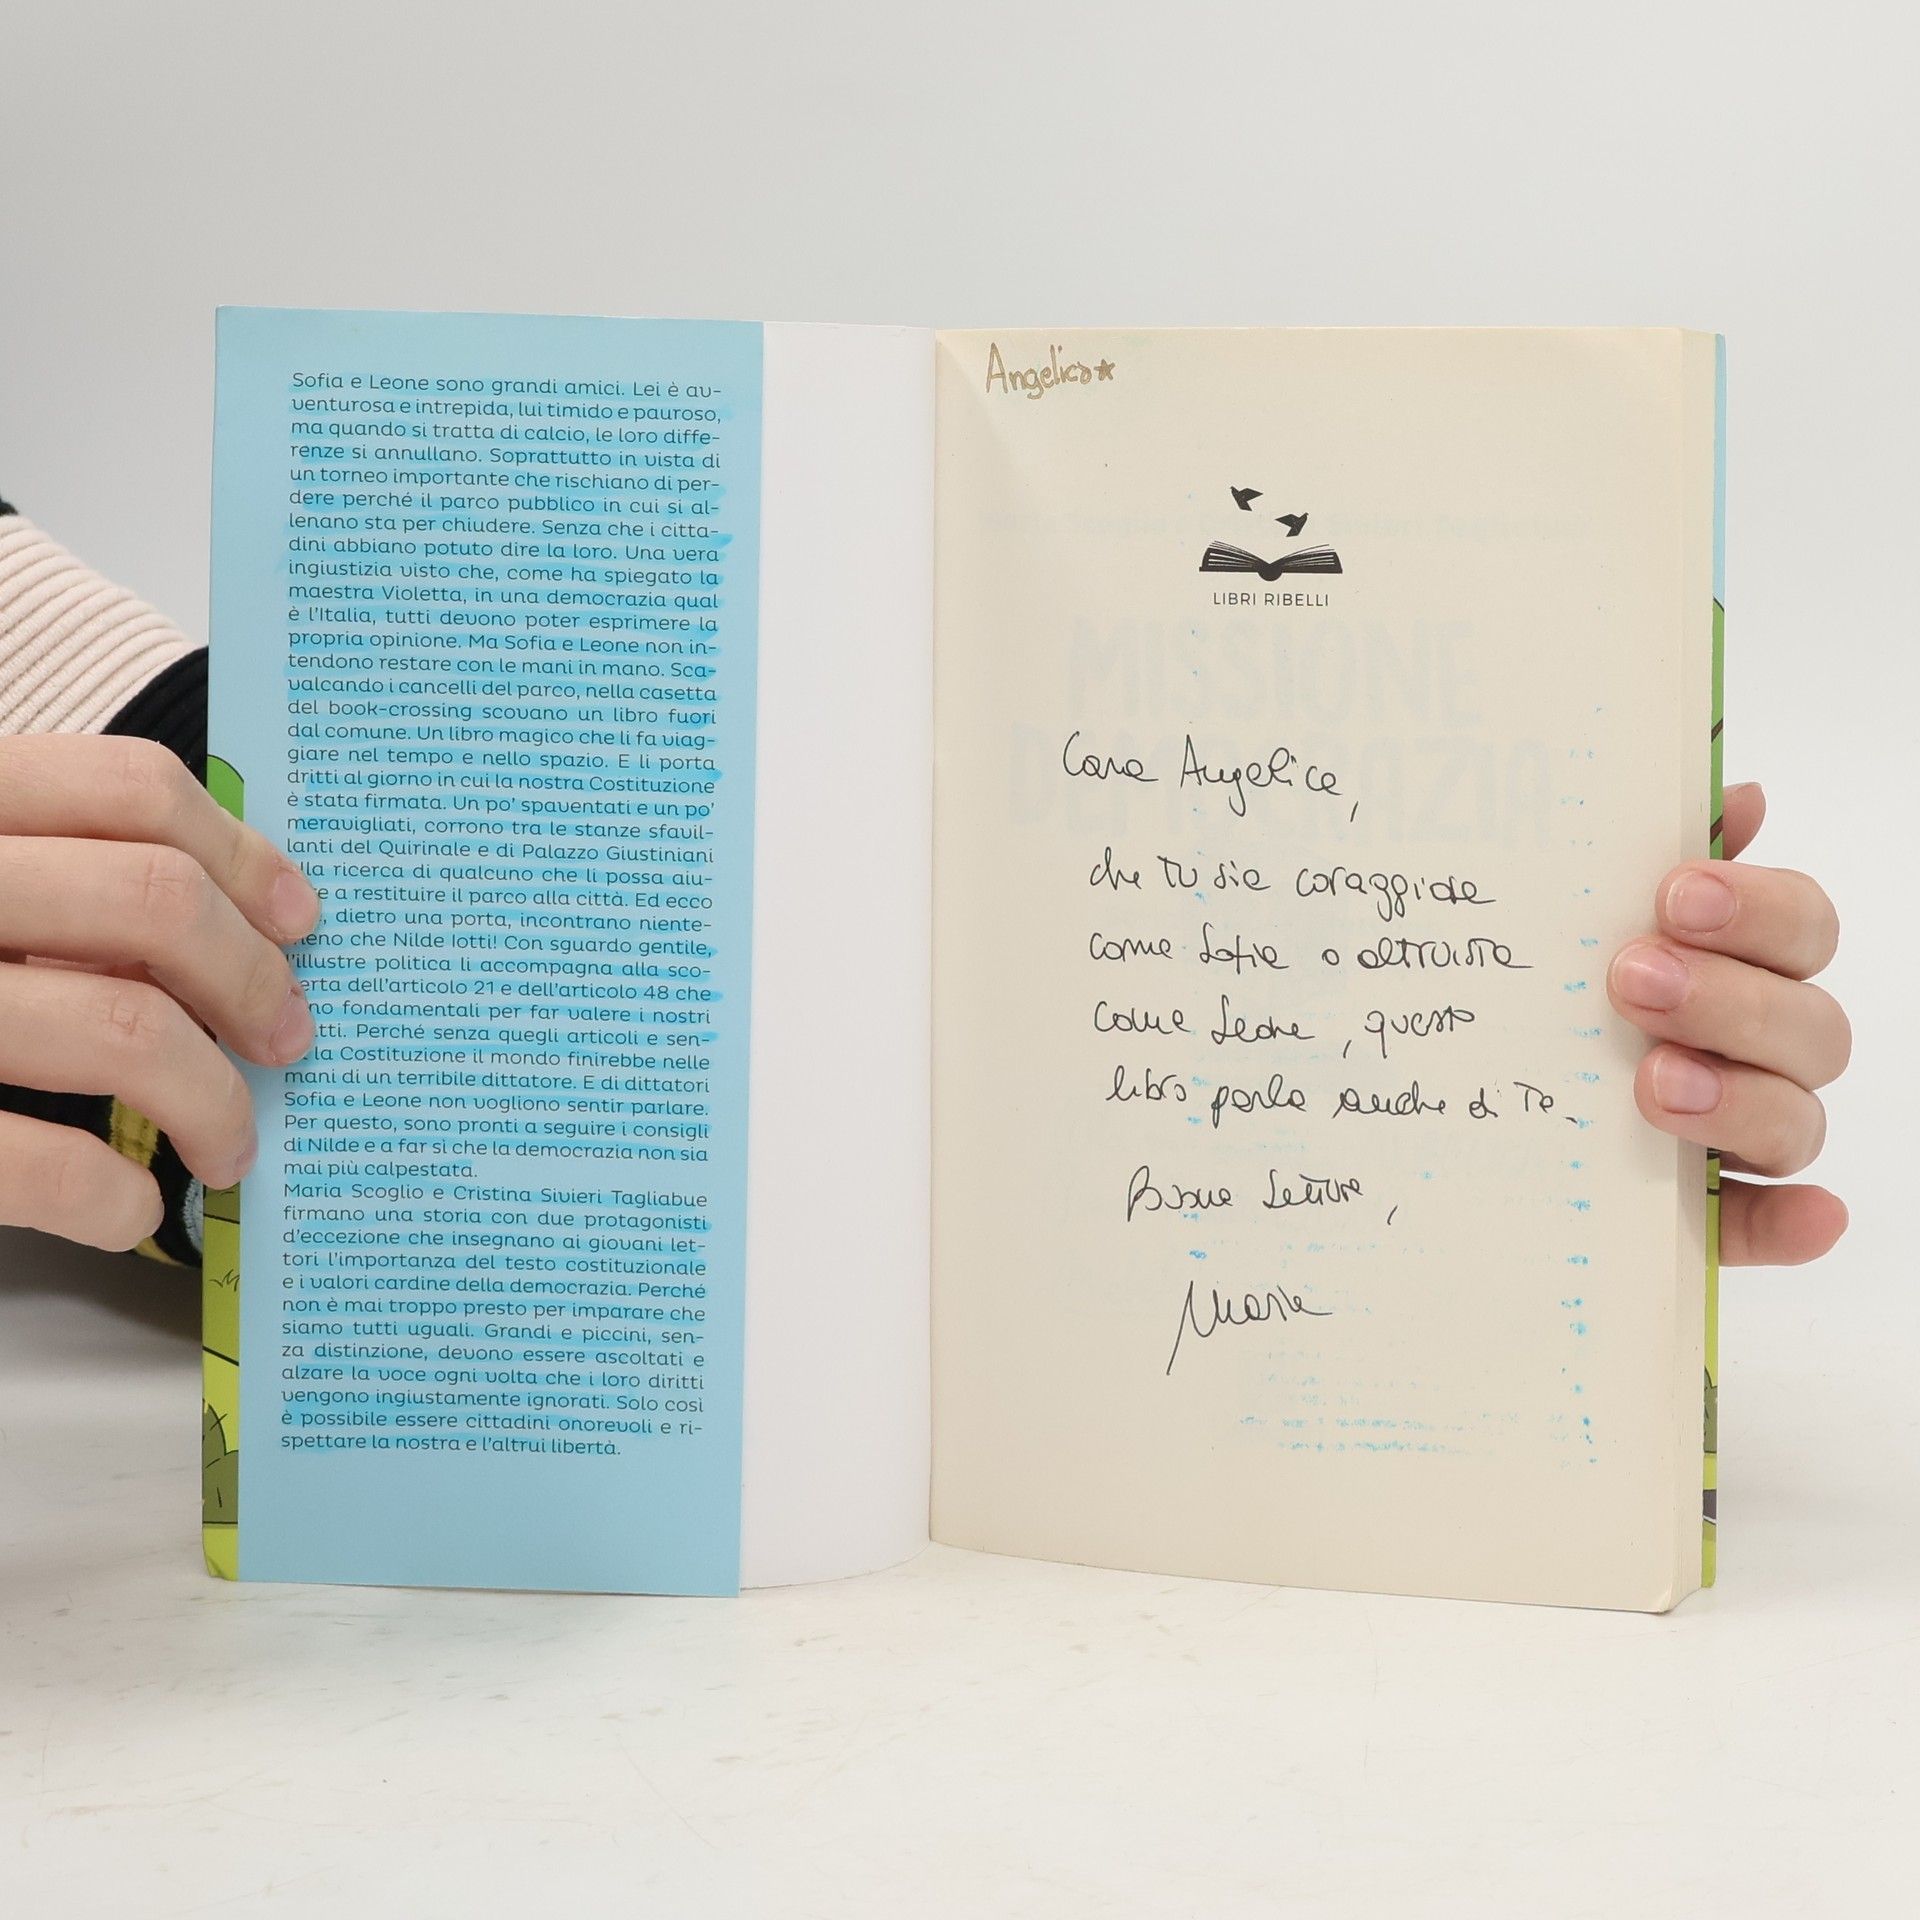 Sofia e Leone sono grandi amici. Lei è av-
venturosa e intrepida, lui timido e pauroso,
ma quando si tratta di calcio, le loro diffe-
renze si annullano. Soprattutto in vista di
un torneo importante che rischiano di per-
dere perché il parco pubblico in cui si al-
lenano sta per chiudere. Senza che i citta-
dini abbiano potuto dire la loro. Una vera
ingiustizia visto che, come ha spiegato la
maestra Violetta, in una democrazia qual
è l'Italia, tutti devono poter esprimere la
propria opinione. Ma Sofia e Leone non in-
tendono restare con le mani in mano. Sca-
valcando i cancelli del parco, nella casetta
del book-crossing scovano un libro fuori
dal comune. Un libro magico che li fa viag-
giare nel tempo e nello spazio. E li porta
dritti al giorno in cui la nostra Costituzione
è stata firmata. Un po' spaventati e un po'
meravigliati, corrono tra le stanze sfavil-
lanti del Quirinale e di Palazzo Giustiniani
lla ricerca di qualcuno che li possa aiu-
re a restituire il parco alla città. Ed ecco
, dietro una porta, incontrano niente-
meno che Nilde Iotti! Con sguardo gentile,
l'illustre politica li accompagna alla sco-
erta dell'articolo 21 e dell'articolo 48 che
no fondamentali per far valere i nostri
tti. Perché senza quegli articoli e sen-
la Costituzione il mondo finirebbe nelle
mani di un terribile dittatore. E di dittatori
Sofia e Leone non vogliono sentir parlare.
Per questo, sono pronti a seguire i consigli
di Nilde e a far sì che la democrazia non sia
mai più calpestata.
Maria Scoglio e Cristina Sivieri Tagliabue
firmano una storia con due protagonisti
d'eccezione che insegnano ai giovani let-
tori l'importanza del testo costituzionale
e i valori cardine della democrazia. Perché
non è mai troppo presto per imparare che
siamo tutti uguali. Grandi e piccini, sen-
za distinzione, devono essere ascoltati e
alzare la voce ogni volta che i loro diritti
vengono ingiustamente ignorati. Solo così
è possibile essere cittadini onorevoli e ri-
spettare la nostra e l'altrui libertà.
Angelica
LIBRI RIBELLI
Cara Angelica,
che tu sia coraggiosa
come Sofia o altruista
come Leone, questo
libro parla anche di te.
Buona lettura,
Maria